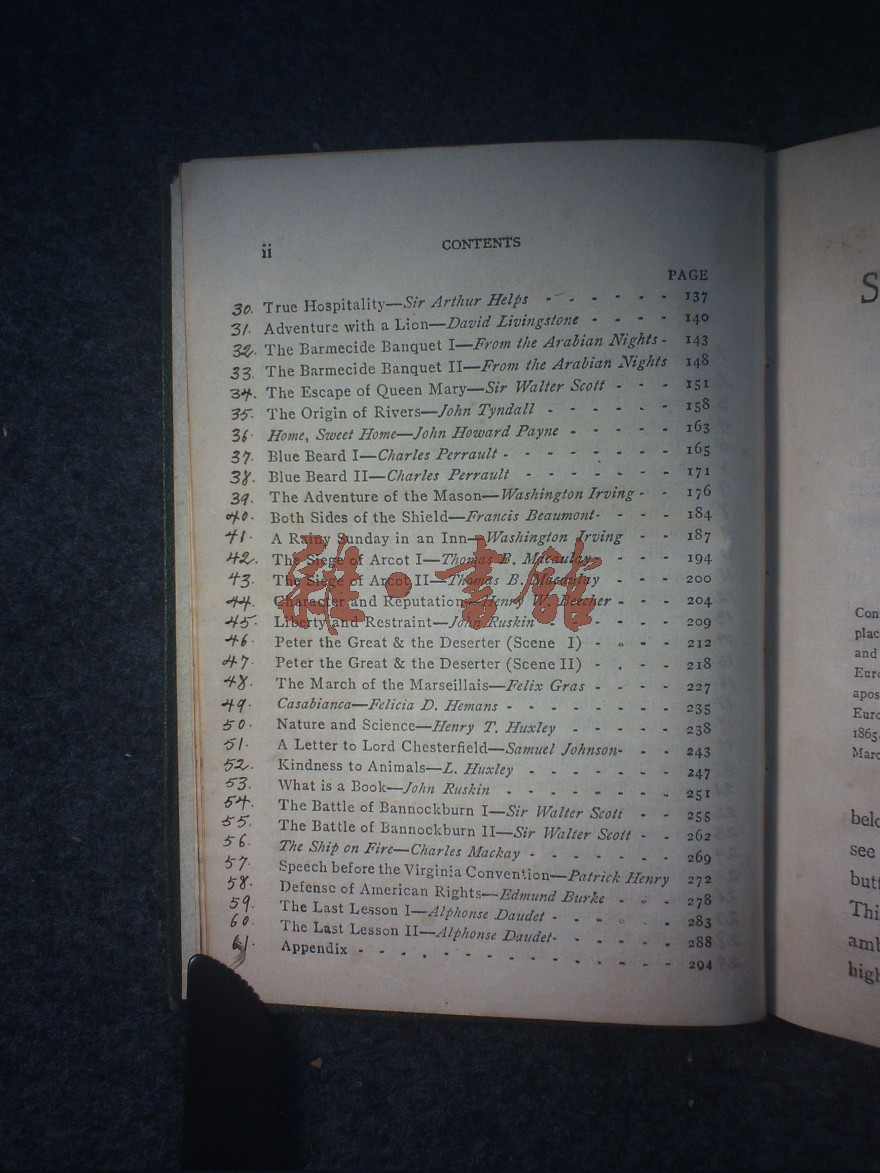 ii CONTENTS
PAGE
30. True Hospitality—Sir Arthur Helps - - - - - - 137
31. Adventure with a Lion—David Livingstone - - - - 140
32. The Barmecide Banquet I—From the Arabian Nights - 143
33. The Barmecide Banquet II—From the Arabian Nights 148
34. The Escape of Queen Mary—Sir Walter Scott - - - 151
35. The Origin of Rivers—John Tyndall - - - - - - 158
36. Home, Sweet Home—John Howard Payne - - - - - 163
37. Blue Beard I—Charles Perrault - - - - - - - - 165
38. Blue Beard II—Charles Perrault - - - - - - - 171
39. The Adventure of the Mason—Washington Irving - - 176
40. Both Sides of the Shield—Francis Beaumont - - - - 184
41. A Rainy Sunday in an Inn—Washington Irving - - - 187
42. The Siege of Arcot I—Thomas B. Macaulay - - - 194
43. The Siege of Arcot II—Thomas B. Macaulay - - - 200
44. Character and Reputation—Henry W. Beecher - - - 204
45. Liberty and Restraint—John Ruskin - - - - - - 209
46. Peter the Great & the Deserter (Scene I) - - - - 212
47. Peter the Great & the Deserter (Scene II) - - - - 218
48. The March of the Marseillais—Felix Gras - - - - 227
49. Casabianca—Felicia D. Hemans - - - - - - - - 235
50. Nature and Science—Henry T. Huxley - - - - - 238
51. A Letter to Lord Chesterfield—Samuel Johnson - - - 243
52. Kindness to Animals—L. Huxley - - - - - - - 247
53. What is a Book—John Ruskin - - - - - - - - 251
54. The Battle of Bannockburn I—Sir Walter Scott - - - 255
55. The Battle of Bannockburn II—Sir Walter Scott - - 262
56. The Ship on Fire—Charles Mackay - - - - - - - 269
57. Speech before the Virginia Convention—Patrick Henry 272
58. Defense of American Rights—Edmund Burke - - - 278
59. The Last Lesson I—Alphonse Daudet - - - - - - 283
60. The Last Lesson II—Alphonse Daudet - - - - - - 288
61. Appendix - - - - - - - - - - - - - - 294
雜·書館
S
Con
plac
and
Euro
apos
Euro
1865.
Marc
belo
see
butt
Thi
amb
high